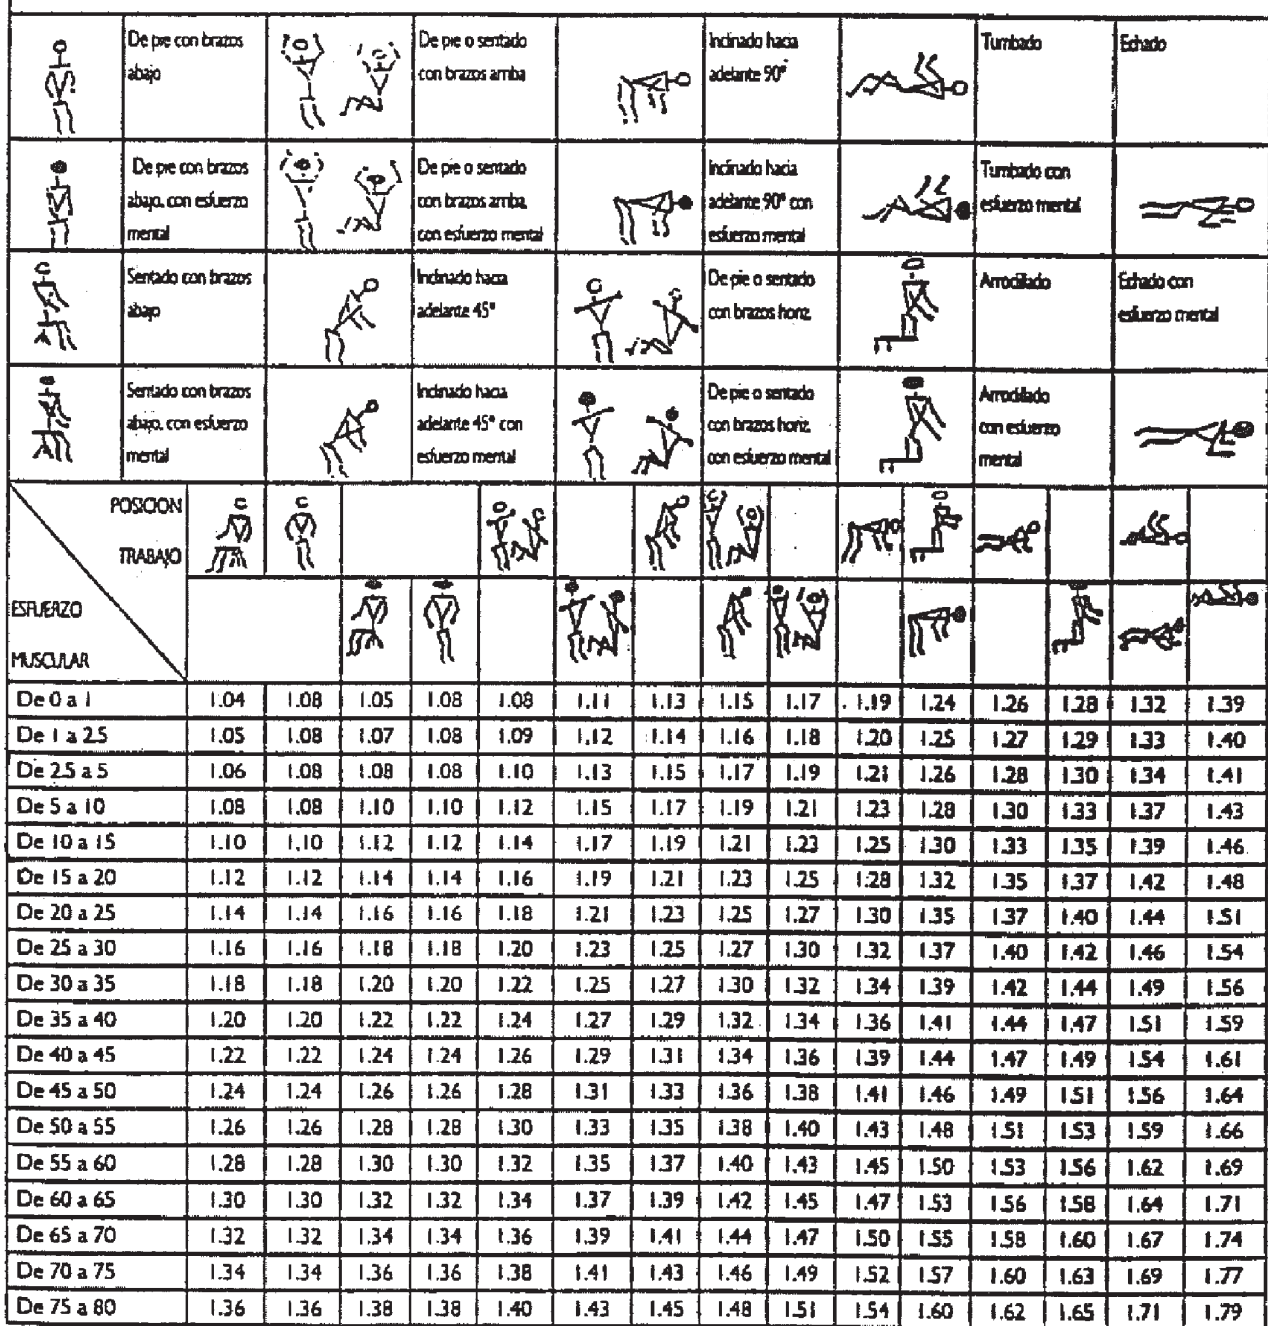 De pie con brazos
abajo
De pie o sentado
con brazos arriba
Inclinado hacia
adelante 90°
Tumbado
Echado
De pie con brazos
abajo, con esfuerzo
mental
De pie o sentado
con brazos arriba,
con esfuerzo mental
Inclinado hacia
adelante 90° con
esfuerzo mental
Tumbado con
esfuerzo mental
Sentado con brazos
abajo
Inclinado hacia
adelante 45°
De pie o sentado
con brazos horiz.
Arrodillado
Echado con
esfuerzo mental
Sentado con brazos
abajo, con esfuerzo
mental
Inclinado hacia
adelante 45° con
esfuerzo mental
De pie o sentado
con brazos horiz.
con esfuerzo mental
Arrodillado
con esfuerzo
mental
POSICION
TRABAJO
ESFUERZO
MUSCULAR
De 0 a 1 1.04 1.08 1.05 1.08 1.08 1.11 1.13 1.15 1.17 1.19 1.24 1.26 1.28 1.32 1.39
De 1 a 2.5 1.05 1.08 1.07 1.08 1.09 1.12 1.14 1.16 1.18 1.20 1.25 1.27 1.29 1.33 1.40
De 2.5 a 5 1.06 1.08 1.08 1.08 1.10 1.13 1.15 1.17 1.19 1.21 1.26 1.28 1.30 1.34 1.41
De 5 a 10 1.08 1.08 1.10 1.10 1.12 1.15 1.17 1.19 1.21 1.23 1.28 1.30 1.33 1.37 1.43
De 10 a 15 1.10 1.10 1.12 1.12 1.14 1.17 1.19 1.21 1.23 1.25 1.30 1.33 1.35 1.39 1.46
De 15 a 20 1.12 1.12 1.14 1.14 1.16 1.19 1.21 1.23 1.25 1.28 1.32 1.35 1.37 1.42 1.48
De 20 a 25 1.14 1.14 1.16 1.16 1.18 1.21 1.23 1.25 1.27 1.30 1.35 1.37 1.40 1.44 1.51
De 25 a 30 1.16 1.16 1.18 1.18 1.20 1.23 1.25 1.27 1.30 1.32 1.37 1.40 1.42 1.46 1.54
De 30 a 35 1.18 1.18 1.20 1.20 1.22 1.25 1.27 1.30 1.32 1.34 1.39 1.42 1.44 1.49 1.56
De 35 a 40 1.20 1.20 1.22 1.22 1.24 1.27 1.29 1.32 1.34 1.36 1.41 1.44 1.47 1.51 1.59
De 40 a 45 1.22 1.22 1.24 1.24 1.26 1.29 1.31 1.34 1.36 1.39 1.44 1.47 1.49 1.54 1.61
De 45 a 50 1.24 1.24 1.26 1.26 1.28 1.31 1.33 1.36 1.38 1.41 1.46 1.49 1.51 1.56 1.64
De 50 a 55 1.26 1.26 1.28 1.28 1.30 1.33 1.35 1.38 1.40 1.43 1.48 1.51 1.53 1.59 1.66
De 55 a 60 1.28 1.28 1.30 1.30 1.32 1.35 1.37 1.40 1.43 1.45 1.50 1.53 1.56 1.62 1.69
De 60 a 65 1.30 1.30 1.32 1.32 1.34 1.37 1.39 1.42 1.45 1.47 1.53 1.56 1.58 1.64 1.71
De 65 a 70 1.32 1.32 1.34 1.34 1.36 1.39 1.41 1.44 1.47 1.50 1.55 1.58 1.60 1.67 1.74
De 70 a 75 1.34 1.34 1.36 1.36 1.38 1.41 1.43 1.46 1.49 1.52 1.57 1.60 1.63 1.69 1.77
De 75 a 80 1.36 1.36 1.38 1.38 1.40 1.43 1.45 1.48 1.51 1.54 1.60 1.62 1.65 1.71 1.79